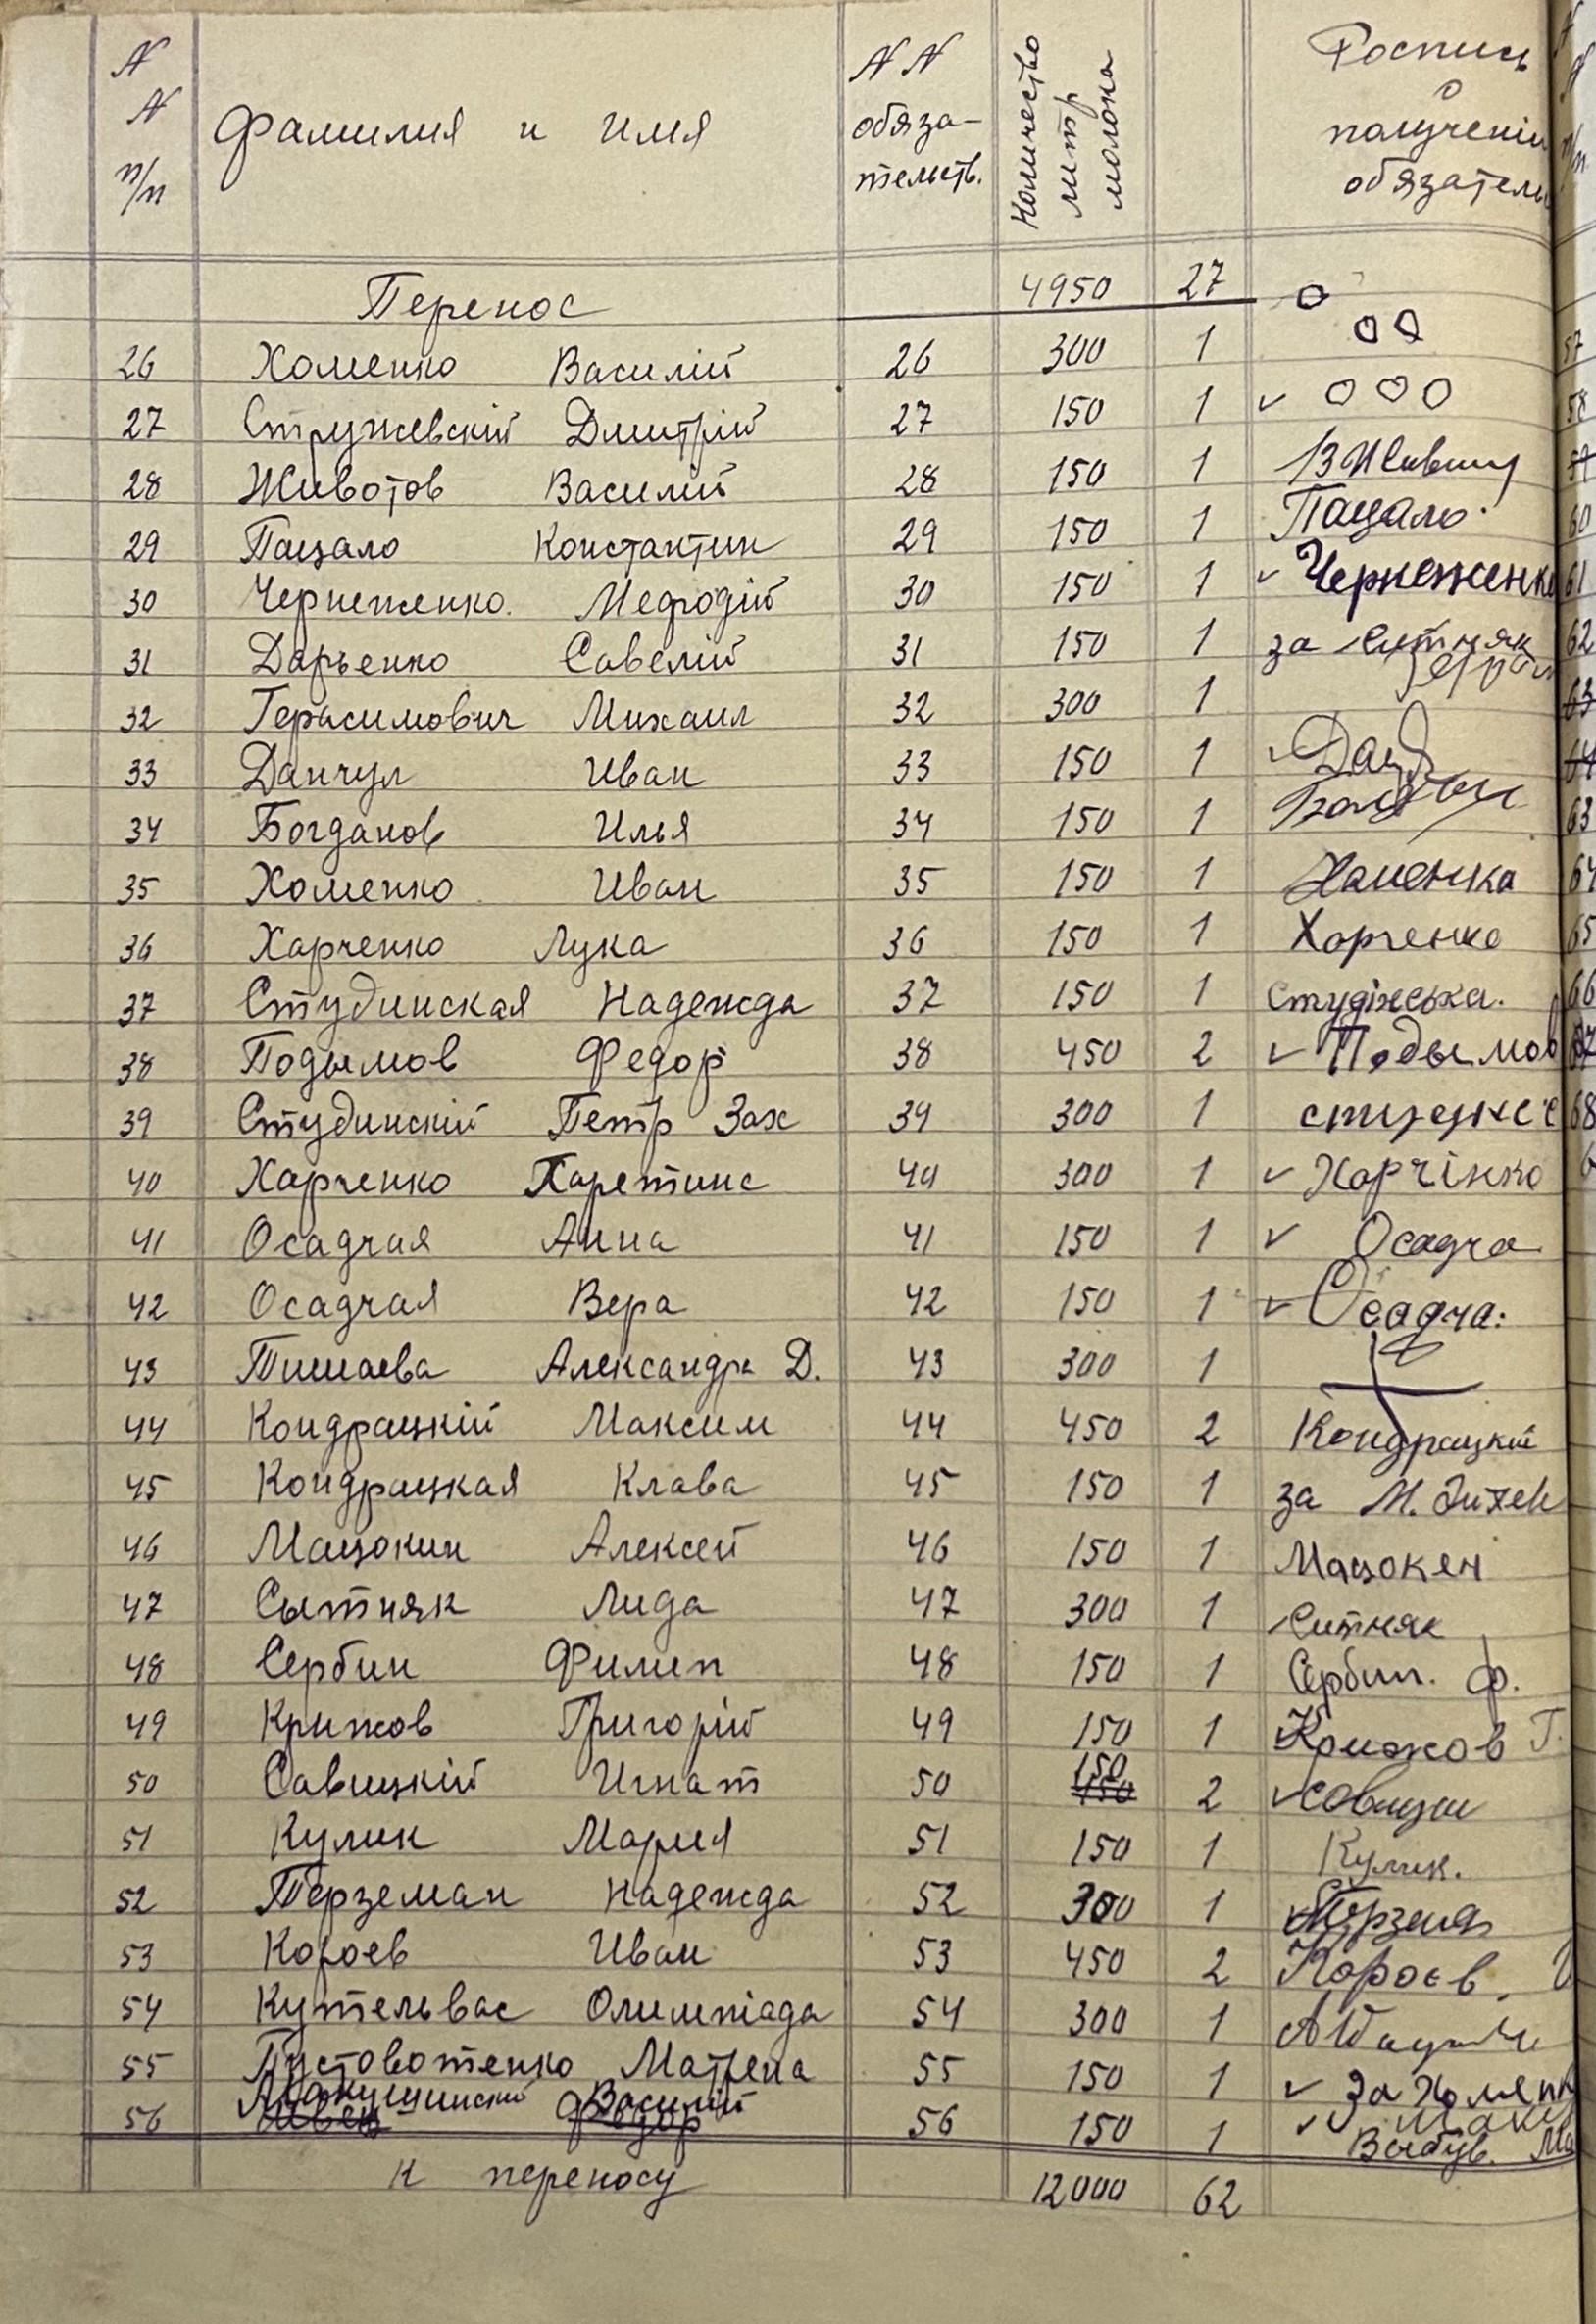 N N п/п Фамилия и имя NN обяза-тельств. Количество литр молока Роспись о получении обязатель
Перенос 4950 27
26 Хоменко Василій 26 300 1
27 Стружевскій Дмитрій 27 150 1 ✓
28 Животов Василій 28 150 1
29 Пацало Константин 29 150 1 Пацало.
30 Чернеженко. Мефодій 30 150 1 ✓ Чернеженко
31 Дарьенко Савелій 31 150 1 за Ситняк
32 Герасимович Михаил 32 300 1
33 Данчул Иван 33 150 1 ✓
34 Богданов Илья 34 150 1
35 Хоменко Иван 35 150 1 Хаменка
36 Харченко Лука 36 150 1 Харченко
37 Студинская Надежда 37 150 1 Студінська.
38 Подымов Федор 38 450 2 ✓ Подымов
39 Студинский Петр Зах 39 300 1
40 Харченко 40 300 1 ✓ Харчінко
41 Осадчая Анна 41 150 1 ✓ Осадча
42 Осадчая Вера 42 150 1 ✓ Осадча:
43 Тишаева Александра Д. 43 300 1
44 Кондрацкій Максим 44 450 2 Кондрацкій
45 Кондрацкая Клава 45 150 1 за М.
46 Мацокин Алексей 46 150 1 Мацокен
47 Сытняк Лида 47 300 1 Ситняк
48 Сербин Филип 48 150 1 Сербин. Ф.
49 Крижов Григорій 49 150 1 Крижов Г.
50 Савицкій Игнат 50 150 450 2 ✓
51 Кулик Мария 51 150 1 Кулик.
52 Терземан Надежда 52 300 1 ✓
53 Короев Иван 53 450 2 Короєв.
54 Кутельвас Олимпіада 54 300 1
55 Пустовотенко Матрена 55 150 1 ✓ За
56 Василій Федор 56 150 1 ✓ Выбув.
К переносу 12000 62